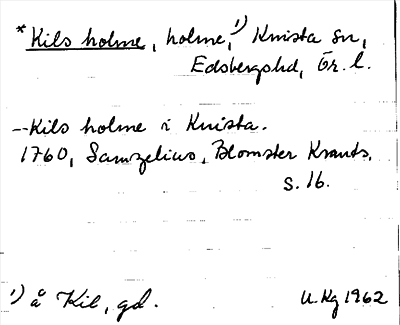 *Kils holme, holme,¹) Knista sn,
Edsbergshd, Ör. l.
--Kils holme i Knista.
1760, Samzelius, Blomster Krants,
s. 16.
¹) å Kil, gd.
U. Kg 1962